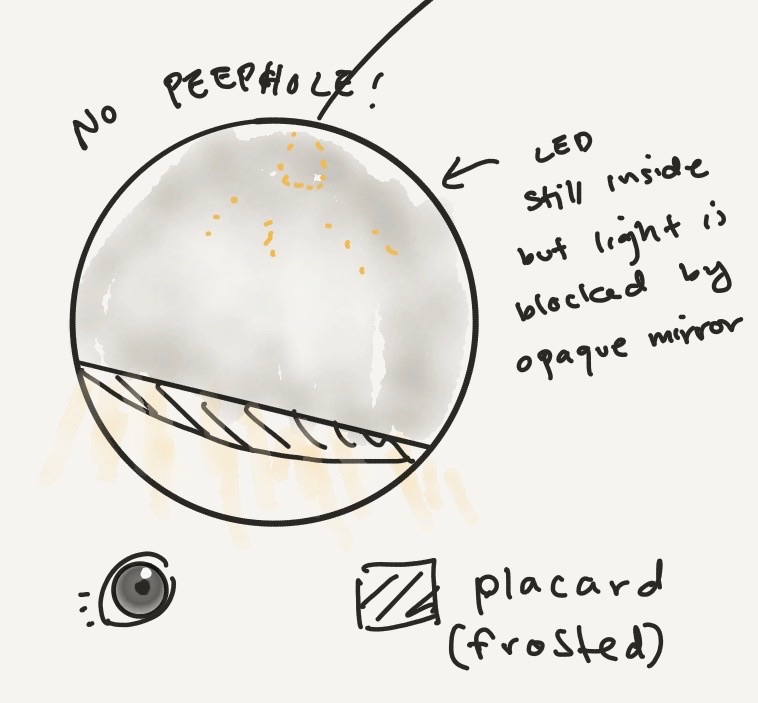 NO PEEPHOLE!
LED
still inside
but light is
blocked by
opaque mirror
placard
(frosted)